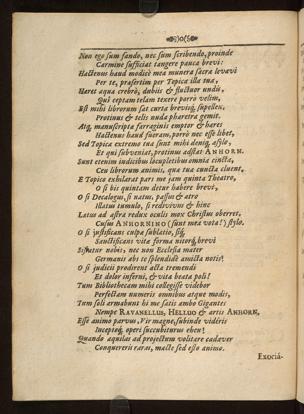 Non ego sum fando, nec sum scribendo, proinde
Carmine sufficiat tangere pauca brevi:
Hactenus haud modicè mea munera sacra levavi
Per te, præsertim per Topica illa tua,
Hæret aqua crebrò, dubiis & fluctuor undis,
Qui ceptam telam texere porrò velim,
Est mihi librorum sat curta brevisq́; supellex,
Protinus & telis nuda pharetra gemit.
Atq; manuscripta farraginis emptor & hæres
Hactenus haud fueram, porrò nec esse libet,
Sed Topica extremo tua sunt mihi deniq; asylo,
Et qui subveniat, protinus adstat ANHORN.
Sunt etenim indicibus locupletibus omnia cincta,
Ceu librorum animis, qua tua cuncta cluent,
E Topico exhilarat pars me jam quinta Theatro,
O si bis quintam detur habere brevi,
O si Decalogus, si natus, passus & atro
Illatus tumulo, si redivivus & hinc
Latus ad astra redux oculis mox Christus oberret,
Cusus ANHORNINO (sunt mea vota!) stylo.
O si justificans culpa sublatio,
Sanctificans vitæ forma nitorq́; brevi
nobis, nec non Ecclesia mater
Germanis abs te splendidè amicta notis!
O si judicii prodirent acta tremendi
Et dolor inferni, & vita beata poli!
Tum Bibliothecam mihi collegisse videbor
Perfectam numeris omnibus atque modis,
Tum soli armabunt hi me satis ambo Gigantes
Nempe RAVANELLUS, HELLUO & artis ANHORN,
Esse animo parvus, Vir magne, subinde vidéris
Inceptoq́; operi succubiturus eheu!
Quando aquilas ad projectum volitare cadaver
Conquereris raras, macte sed esto animo.
Exociá-